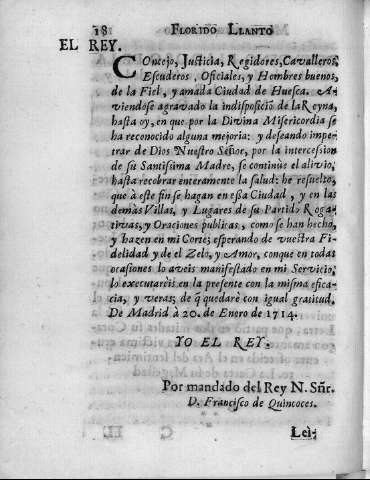 18 FLORIDO LLANTO
EL REY.
COncejo, Justicia, Regidores, Cavalleros,
Escuderos, Oficiales, y Hombres buenos,
de la Fiel, y amada Ciudad de Huesca. A-
viendose agravado la indisposiciõ de la Reyna,
hasta oy, en que por la Divina Misericordia se
ha reconocido alguna mejoria: y deseando impe-
trar de Dios Nuestro Señor, por la intercesion
de su Santisima Madre, se continùe el alivio,
hasta recobrar enteramente la salud: he resuelto,
que à este fin se hagan en esa Ciudad, y en las
demàs Villas, y Lugares de su Partido Roga-
tivas, y Oraciones publicas, como se han hecho,
y hazen en mi Corte; esperando de vuestra Fi-
delidad y de el Zelo, y Amor, conque en todas
ocasiones lo aveis manifestado en mi Servicio,
lo executarèis en la presente con la misma efica-
cia, y veras; de q̃ quedarè con igual gratitud.
De Madrid à 20. de Enero de 1714.
YO EL REY.
Por mandado del Rey N. Sñr.
D. Francisco de Quincoces.
Lei-